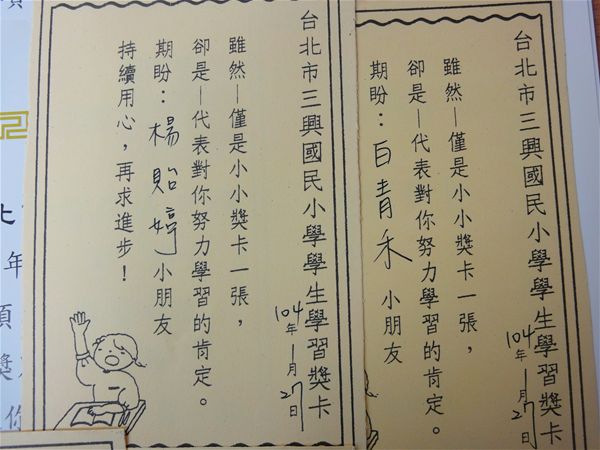 台北市三興國民小學學生學習獎卡
雖然—僅是小小獎卡一張，
卻是—代表對你努力學習的肯定。
期盼：楊貽婷小朋友
持續用心，再求進步！
104年1月27日
台北市三興國民小學學生學習獎卡
雖然—僅是小小獎卡一張，
卻是—代表對你努力學習的肯定。
期盼：白青禾小朋友
104年1月27日